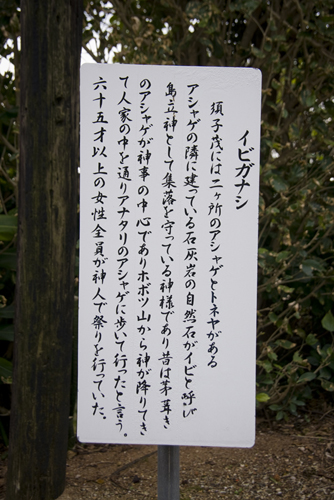 イビガナシ
須子茂には二ヶ所のアシャゲとトネヤがある
アシャゲの隣に建っている石灰岩の自然石がイビと呼び
島立神として集落を守っている神様であり昔は茅葺き
のアシャゲが神事の中心でありホボツ山から神が降りてき
て人家の中を通りアナタリのアシャゲに歩いて行ったと言う。
六十五才以上の女性全員が神人で祭りを行っていた。